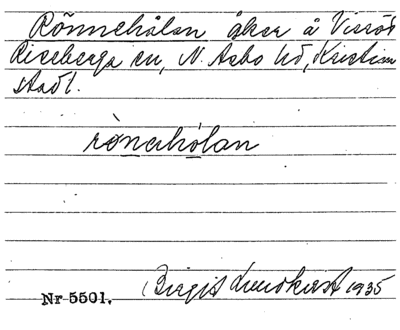 Rönnehålan åker å Vissös
Riseberga sn, N. Asbo hd, Kristian
stads l.
rönehólan
Nr 5501. Birgit Lundkvist 1935